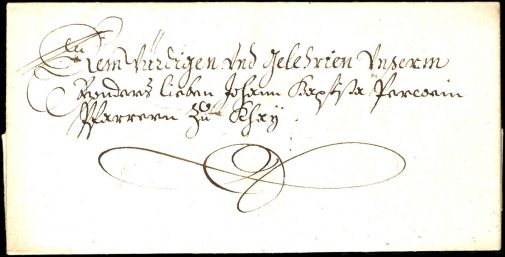 Dem Würdigen Und Gelehrten Unserm
Besonders lieben Johann Baptista
Pfarrern Zu